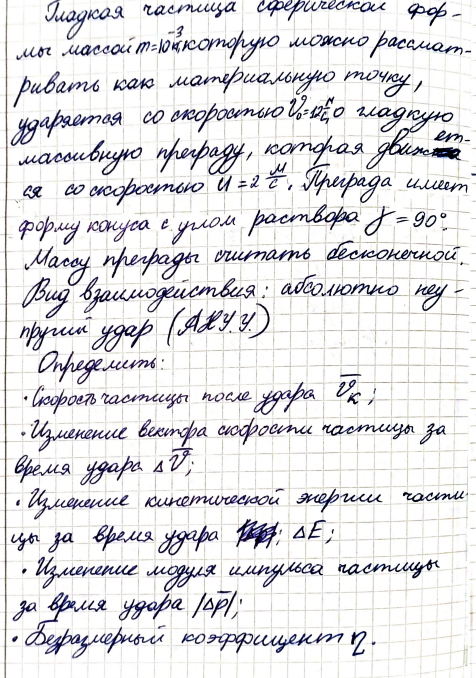 Гладкая частица сферической фор-
мы массой m=10⁻³кг, которую можно рассмат-
ривать как материальную точку,
ударяется со скоростью V₀=12 м/с, о гладкую
массивную преграду, которая движет-
ся со скоростью U=2 м/с. Преграда имеет
форму конуса с углом раствора γ=90°.
Массу преграды считать бесконечной.
Вид взаимодействия: абсолютно неу-
пругий удар (АНУУ)
Определить:
• Скорость частицы после удара V̅к;
• Изменение вектора скорости частицы за
время удара ΔV̅;
• Изменение кинетической энергии части
цы за время удара ; ΔE;
• Изменение модуля импульса частицы
за время удара |Δp̅|;
• Безразмерный коэффициент η.